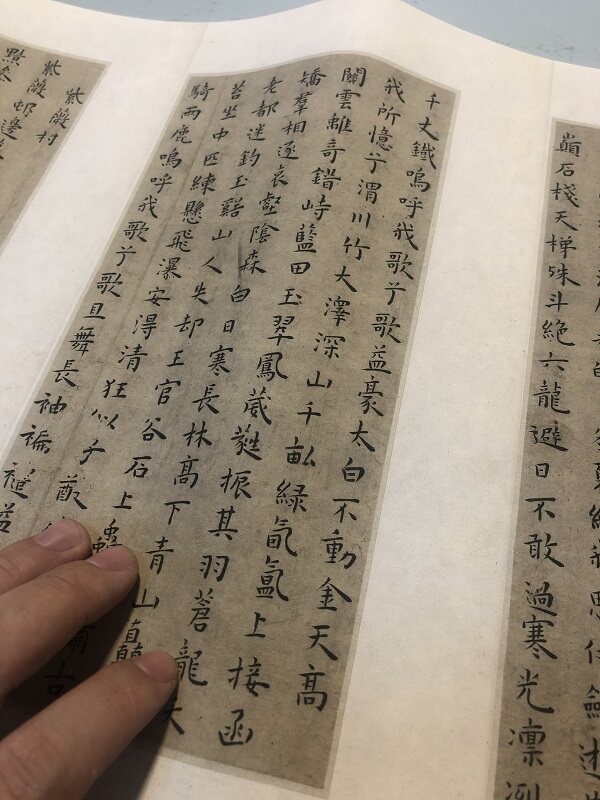 巔石棧天梯殊斗絕六龍避日不敢過寒光凛冽
千丈鐵嗚呼我歌兮歌益豪太白不動金天高
我所憶兮渭川竹大澤深山千畝綠氤氳上接函
關雲離奇錯峙藍田玉翠鳳葳蕤振其羽蒼龍夭
矯羣相逐哀壑陰森白日寒長林高下青山
老都迷釣玉谿山人失却王官谷石上
苔坐中匹練懸飛瀑安得清狂似子猷
騎兩鹿嗚呼我歌兮歌且舞長袖
紫薇村
紫薇邨邊